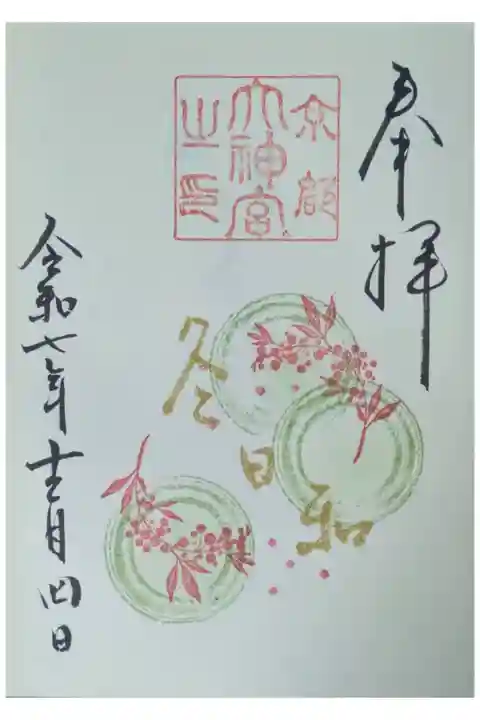 奉拝
京都
大神宮
之印
冬日和
令和七年十二月四日